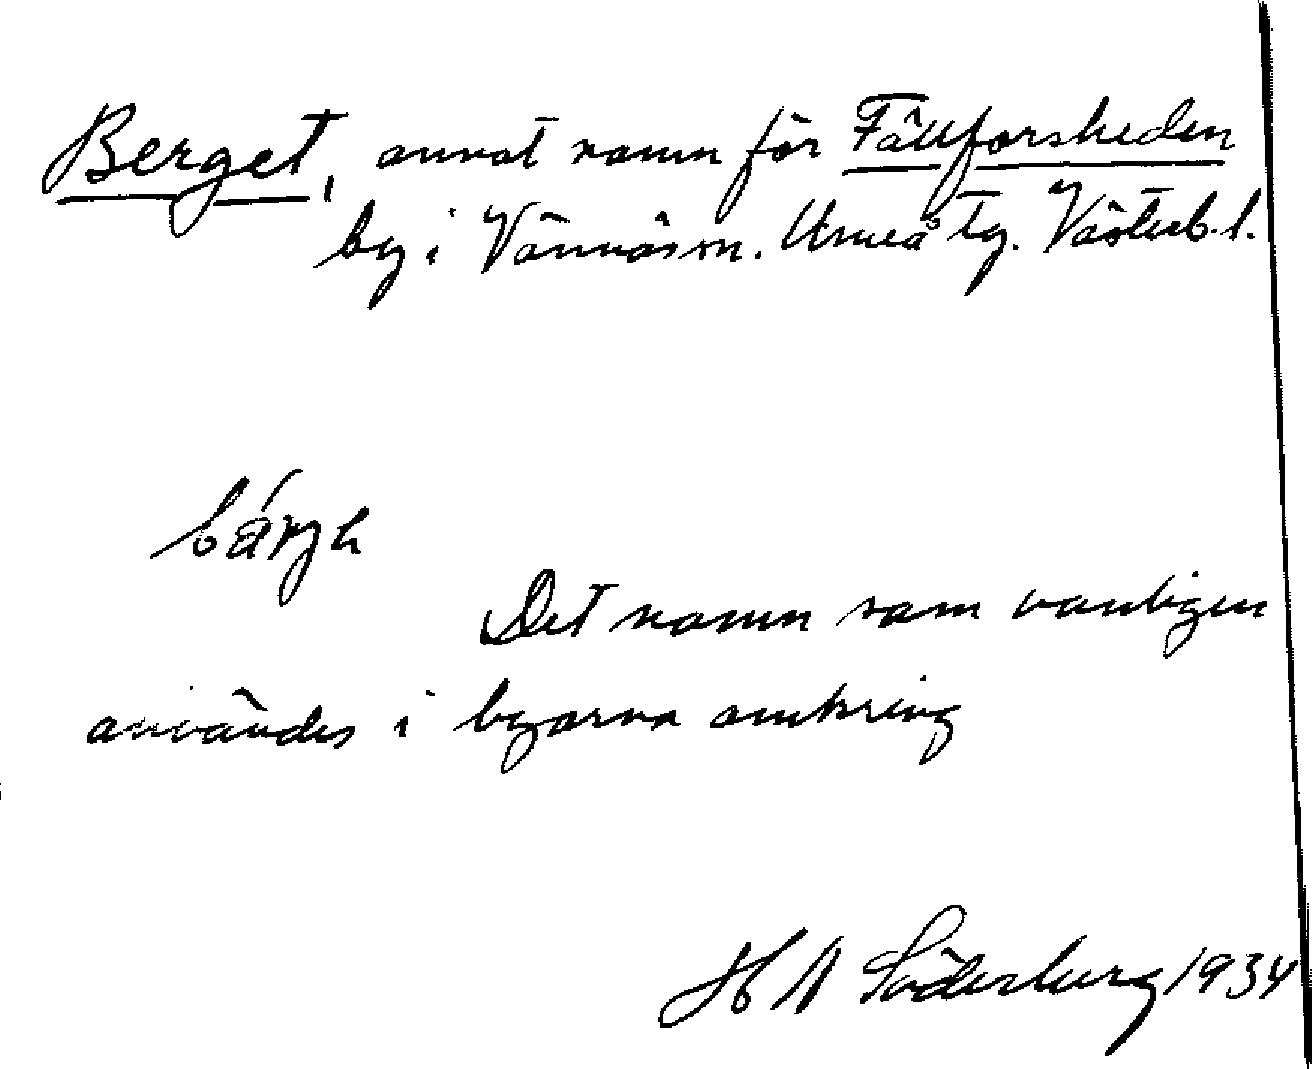 Berget, annat namn för Fällforsheden
by i Vännäs sn. Umeå tg. Västerb. l.
bärjh
Det namn som vanligen
användes i byarna omkring
H A Söderburg 1934